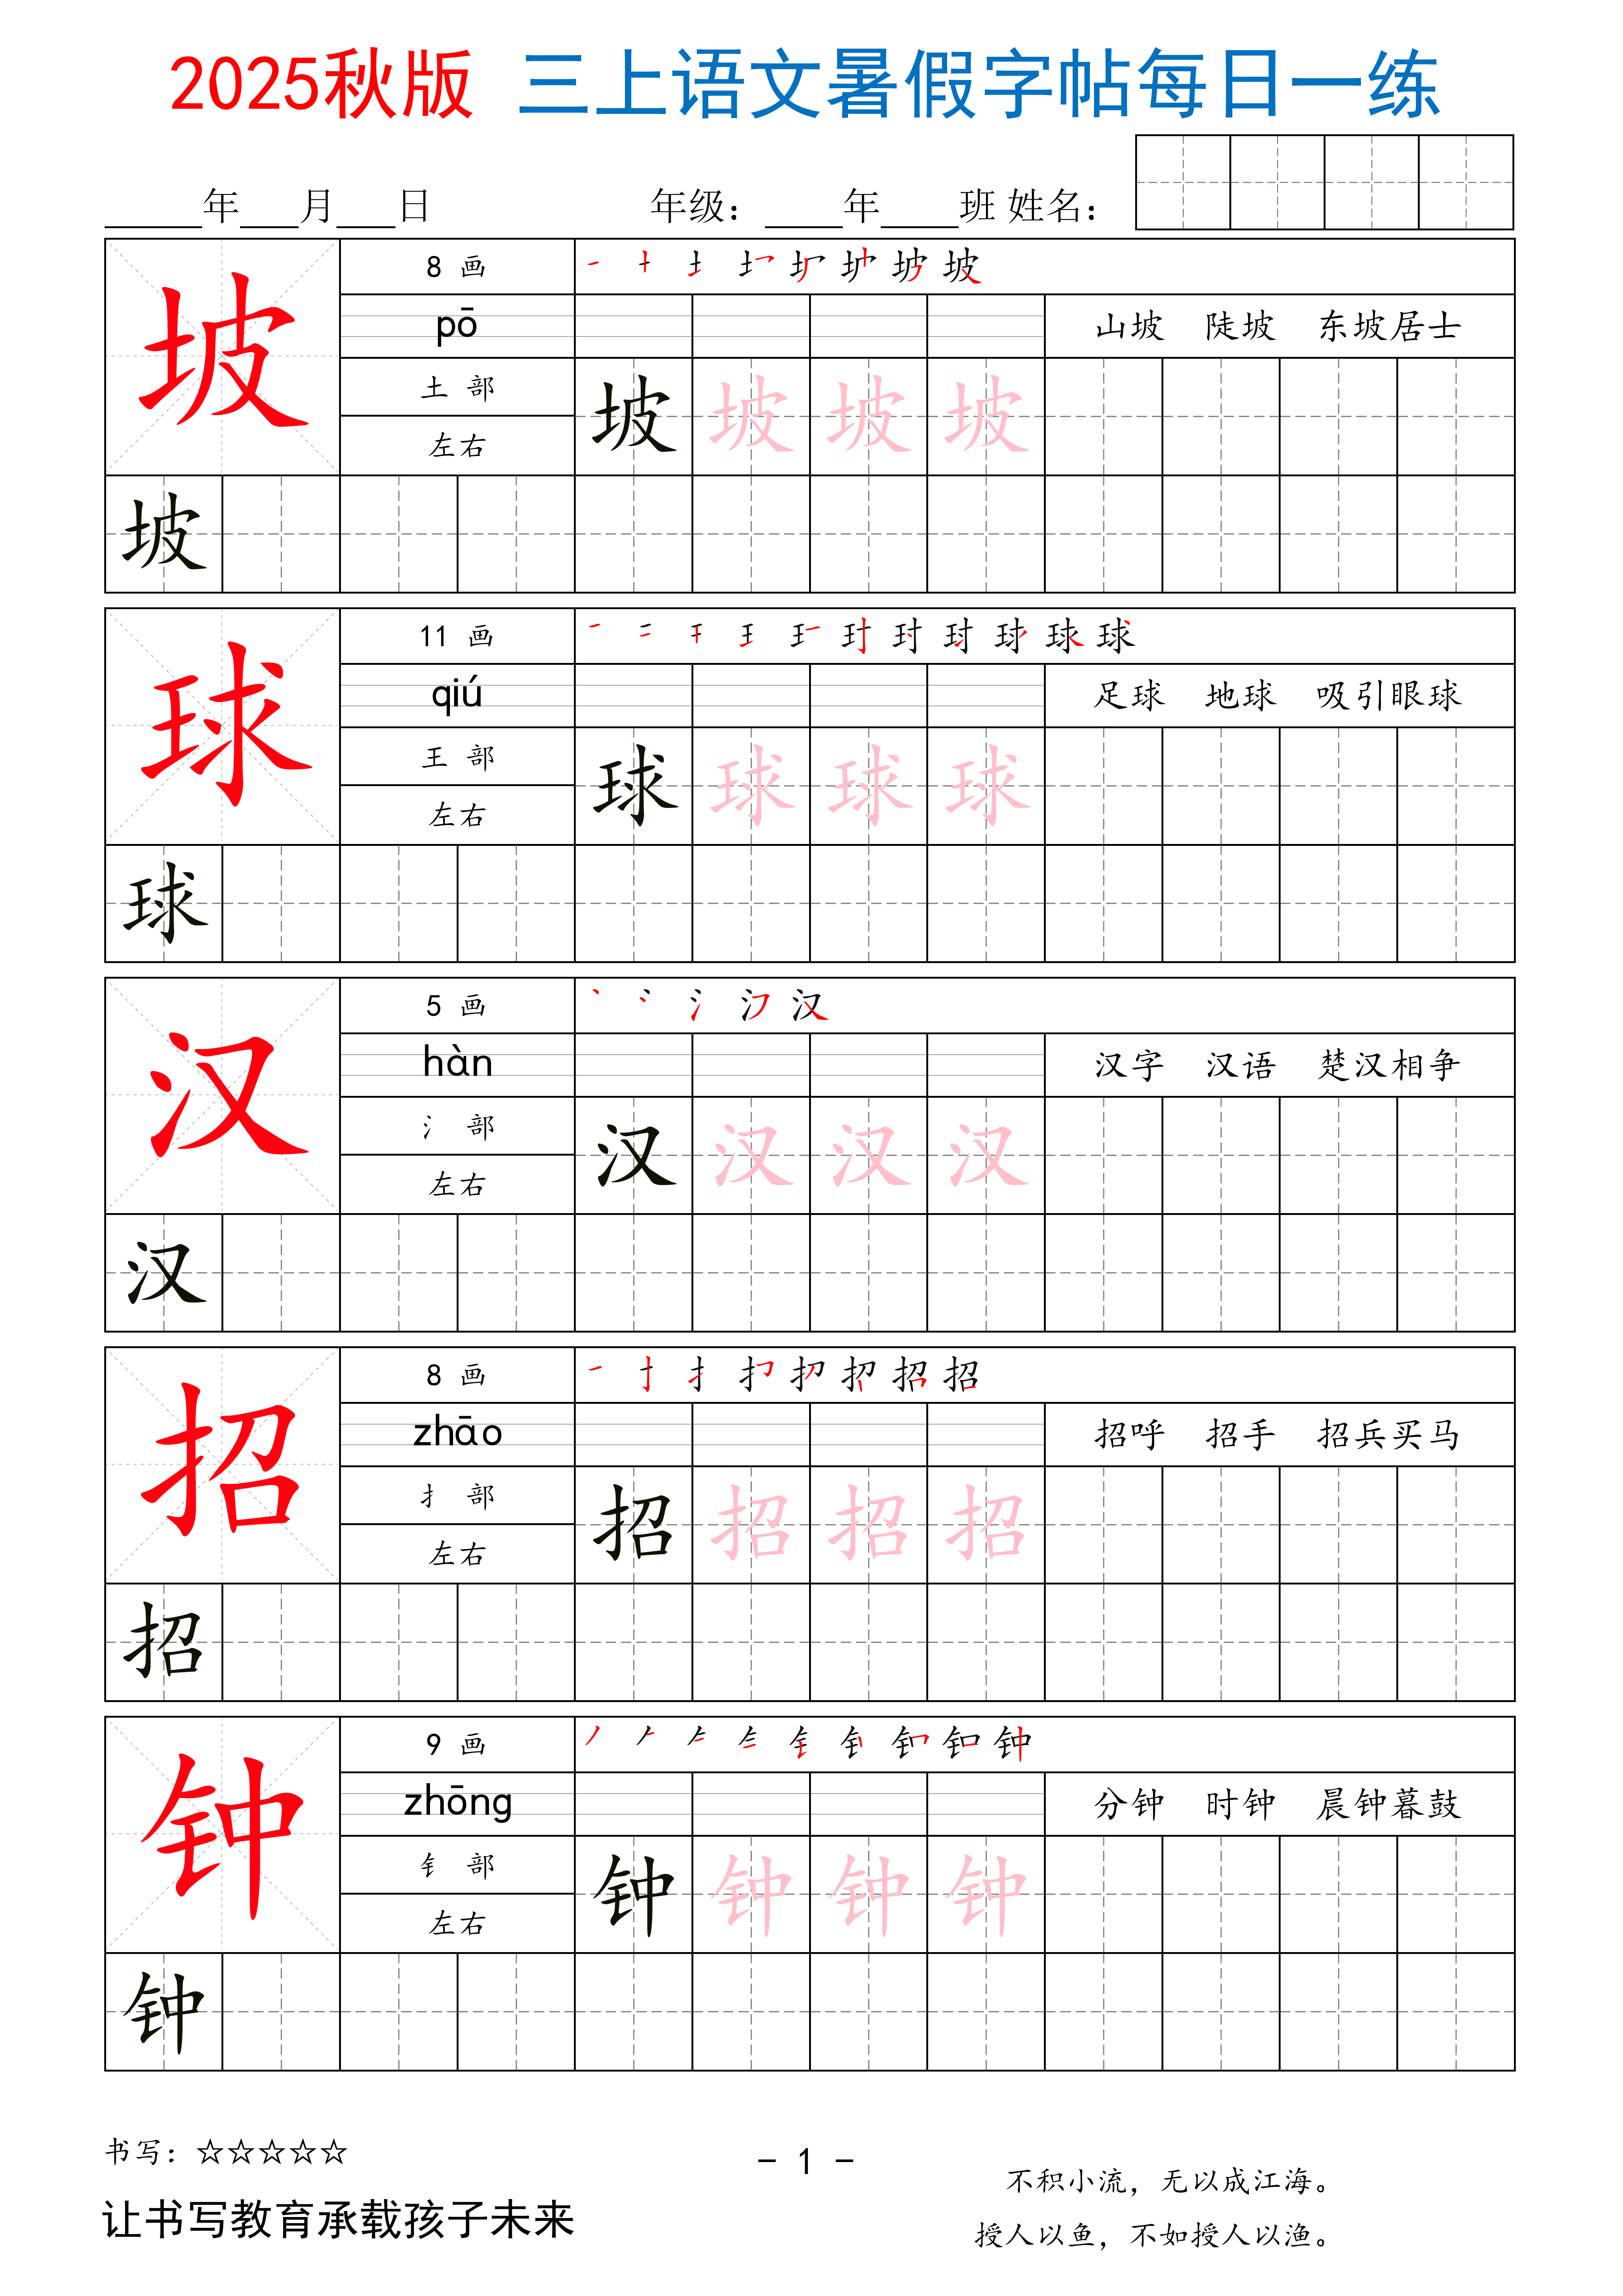 2025秋版 三上语文暑假字帖每日一练
年 月 日 年级： 年 班 姓名：
坡 8 画
pō 山坡 陡坡 东坡居士
土 部 坡 坡 坡 坡
左右
坡
球 11 画
qiú 足球 地球 吸引眼球
王 部 球 球 球 球
左右
球
汉 5 画
hàn 汉字 汉语 楚汉相争
氵 部 汉 汉 汉 汉
左右
汉
招 8 画
zhāo 招呼 招手 招兵买马
扌 部 招 招 招 招
左右
招
钟 9 画
zhōng 分钟 时钟 晨钟暮鼓
钅 部 钟 钟 钟 钟
左右
钟
书写：☆☆☆☆☆
- 1 -
不积小流，无以成江海。
让书写教育承载孩子未来
授人以鱼，不如授人以渔。